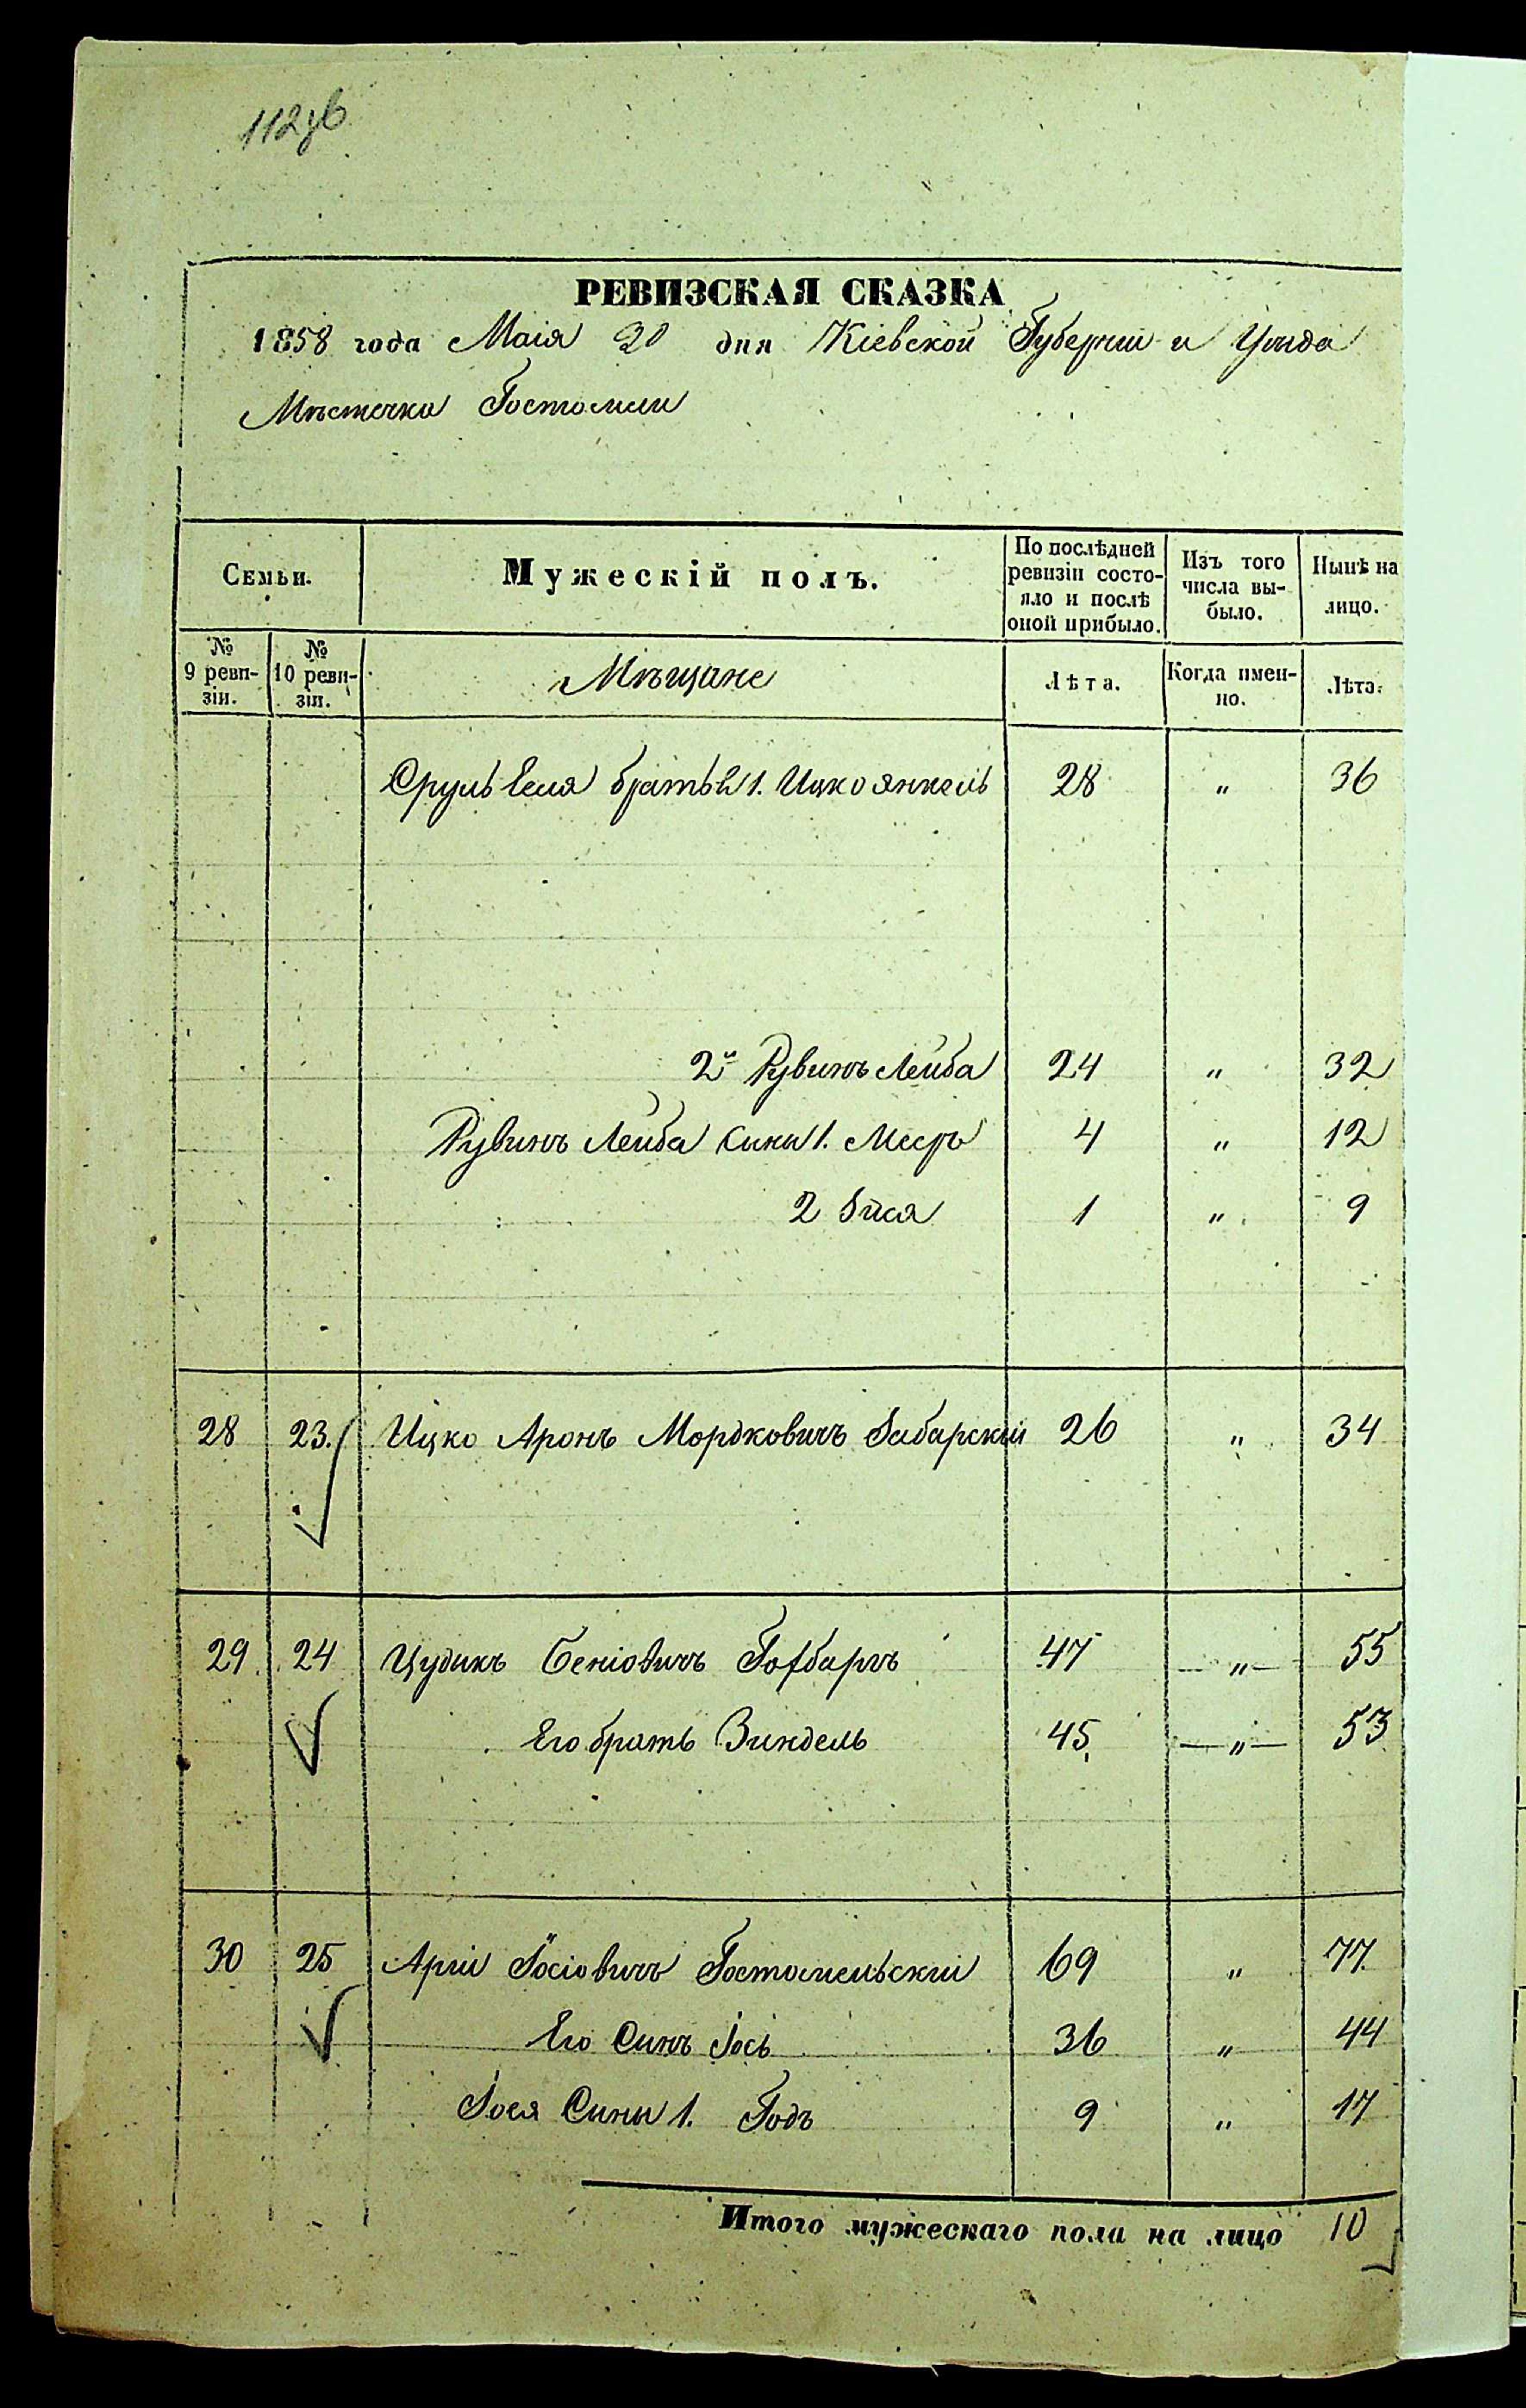 112зв
РЕВИЗСКАЯ СКАЗКА
1858 года Маія 30 дня Кіевской Губерніи и Уѣзда
Мѣстечка Гостомеля
Семьи.
Мужескій полъ.
По послѣдней ревизіи состо-
яло и послѣ оной прибыло.
Изъ того числа вы-
было.
Нынѣ на лицо.
№ 9 реви-
зіи.
№ 10 реви-
зіи.
Мѣщане
Лѣта.
Когда имен-
но.
Лѣта.
Сруль Еля братья 1. Ицко Янкель 28 " 36
2й Рувинъ Лейба 24 " 32
Рувинъ Лейба Сины 1. Меер 4 " 12
2 1 " 9
28 23. Ицко Аронъ Мордковичъ 26 " 34
29 24 Цудикъ Беніовичъ 47 " 55
Его братъ Зиндель 45 " 53
30 25 Арій Іосіовичъ Гостомельскій 69 " 77
Его Синъ Іось 36 " 44
Іося Сины 1. Годъ 9 " 17
Итого мужескаго пола на лицо 10